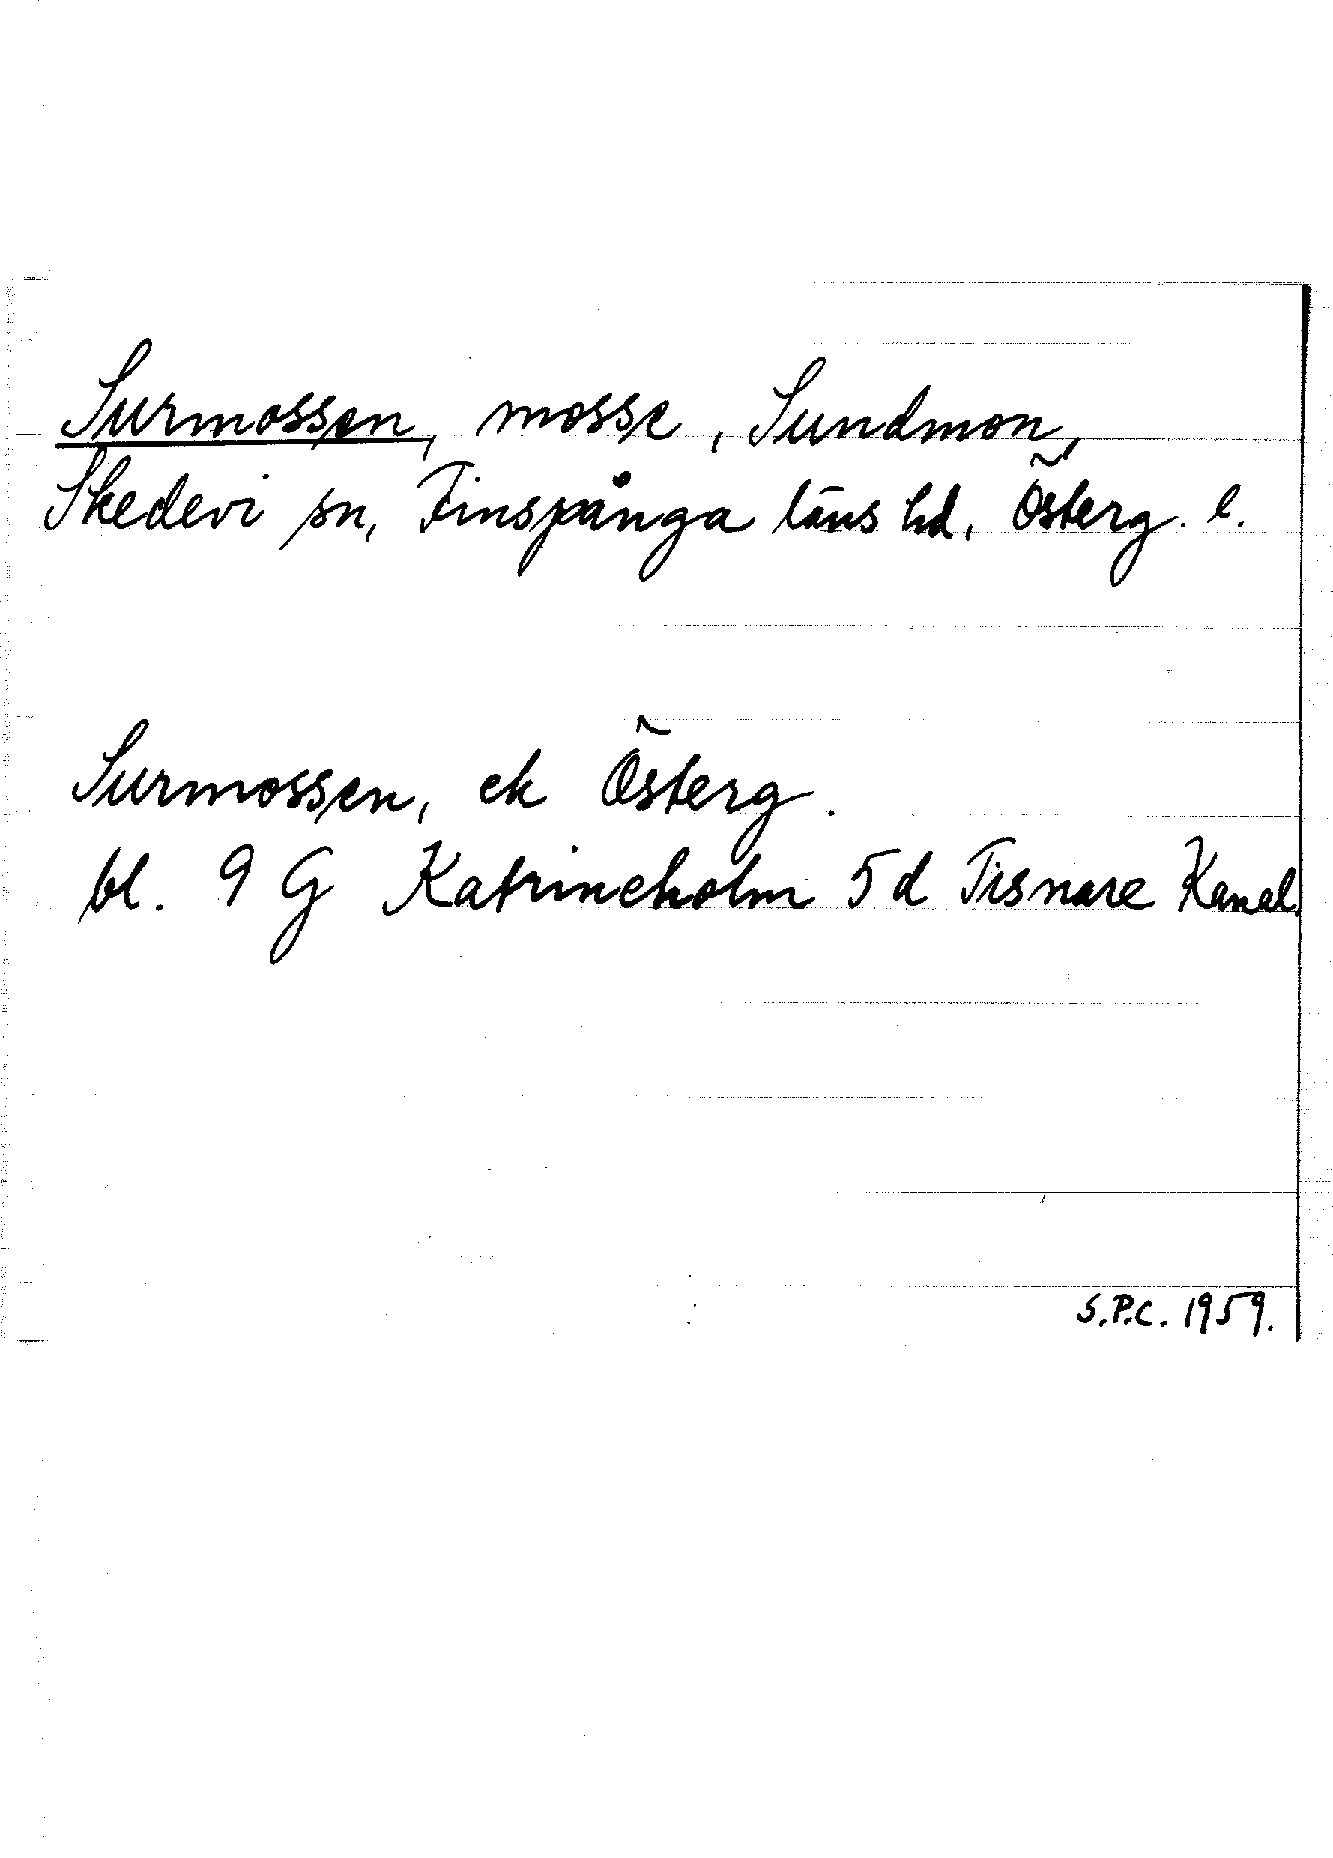 Surmossen, mosse, Sundmon,
Skedevi sn, Finspånga läns hd, Österg. l.
Surmossen, ek Österg.
bl. 9 G Katrineholm 5d Tisnare Kanal.
S.P.C. 1959.